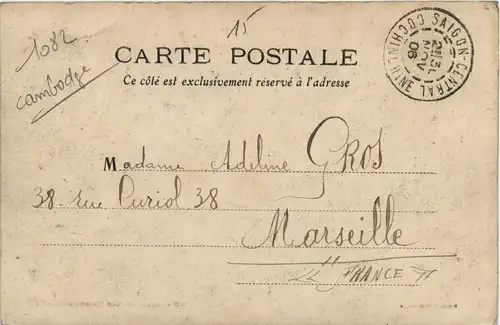 1082
cambodge
15
CARTE POSTALE
Ce côté est exclusivement réservé à l'adresse
SAIGON-CENTRAL
COCHINCHINE
Madame Adeline GROS
38 - rue Curiol 38
Marseille
FRANCE